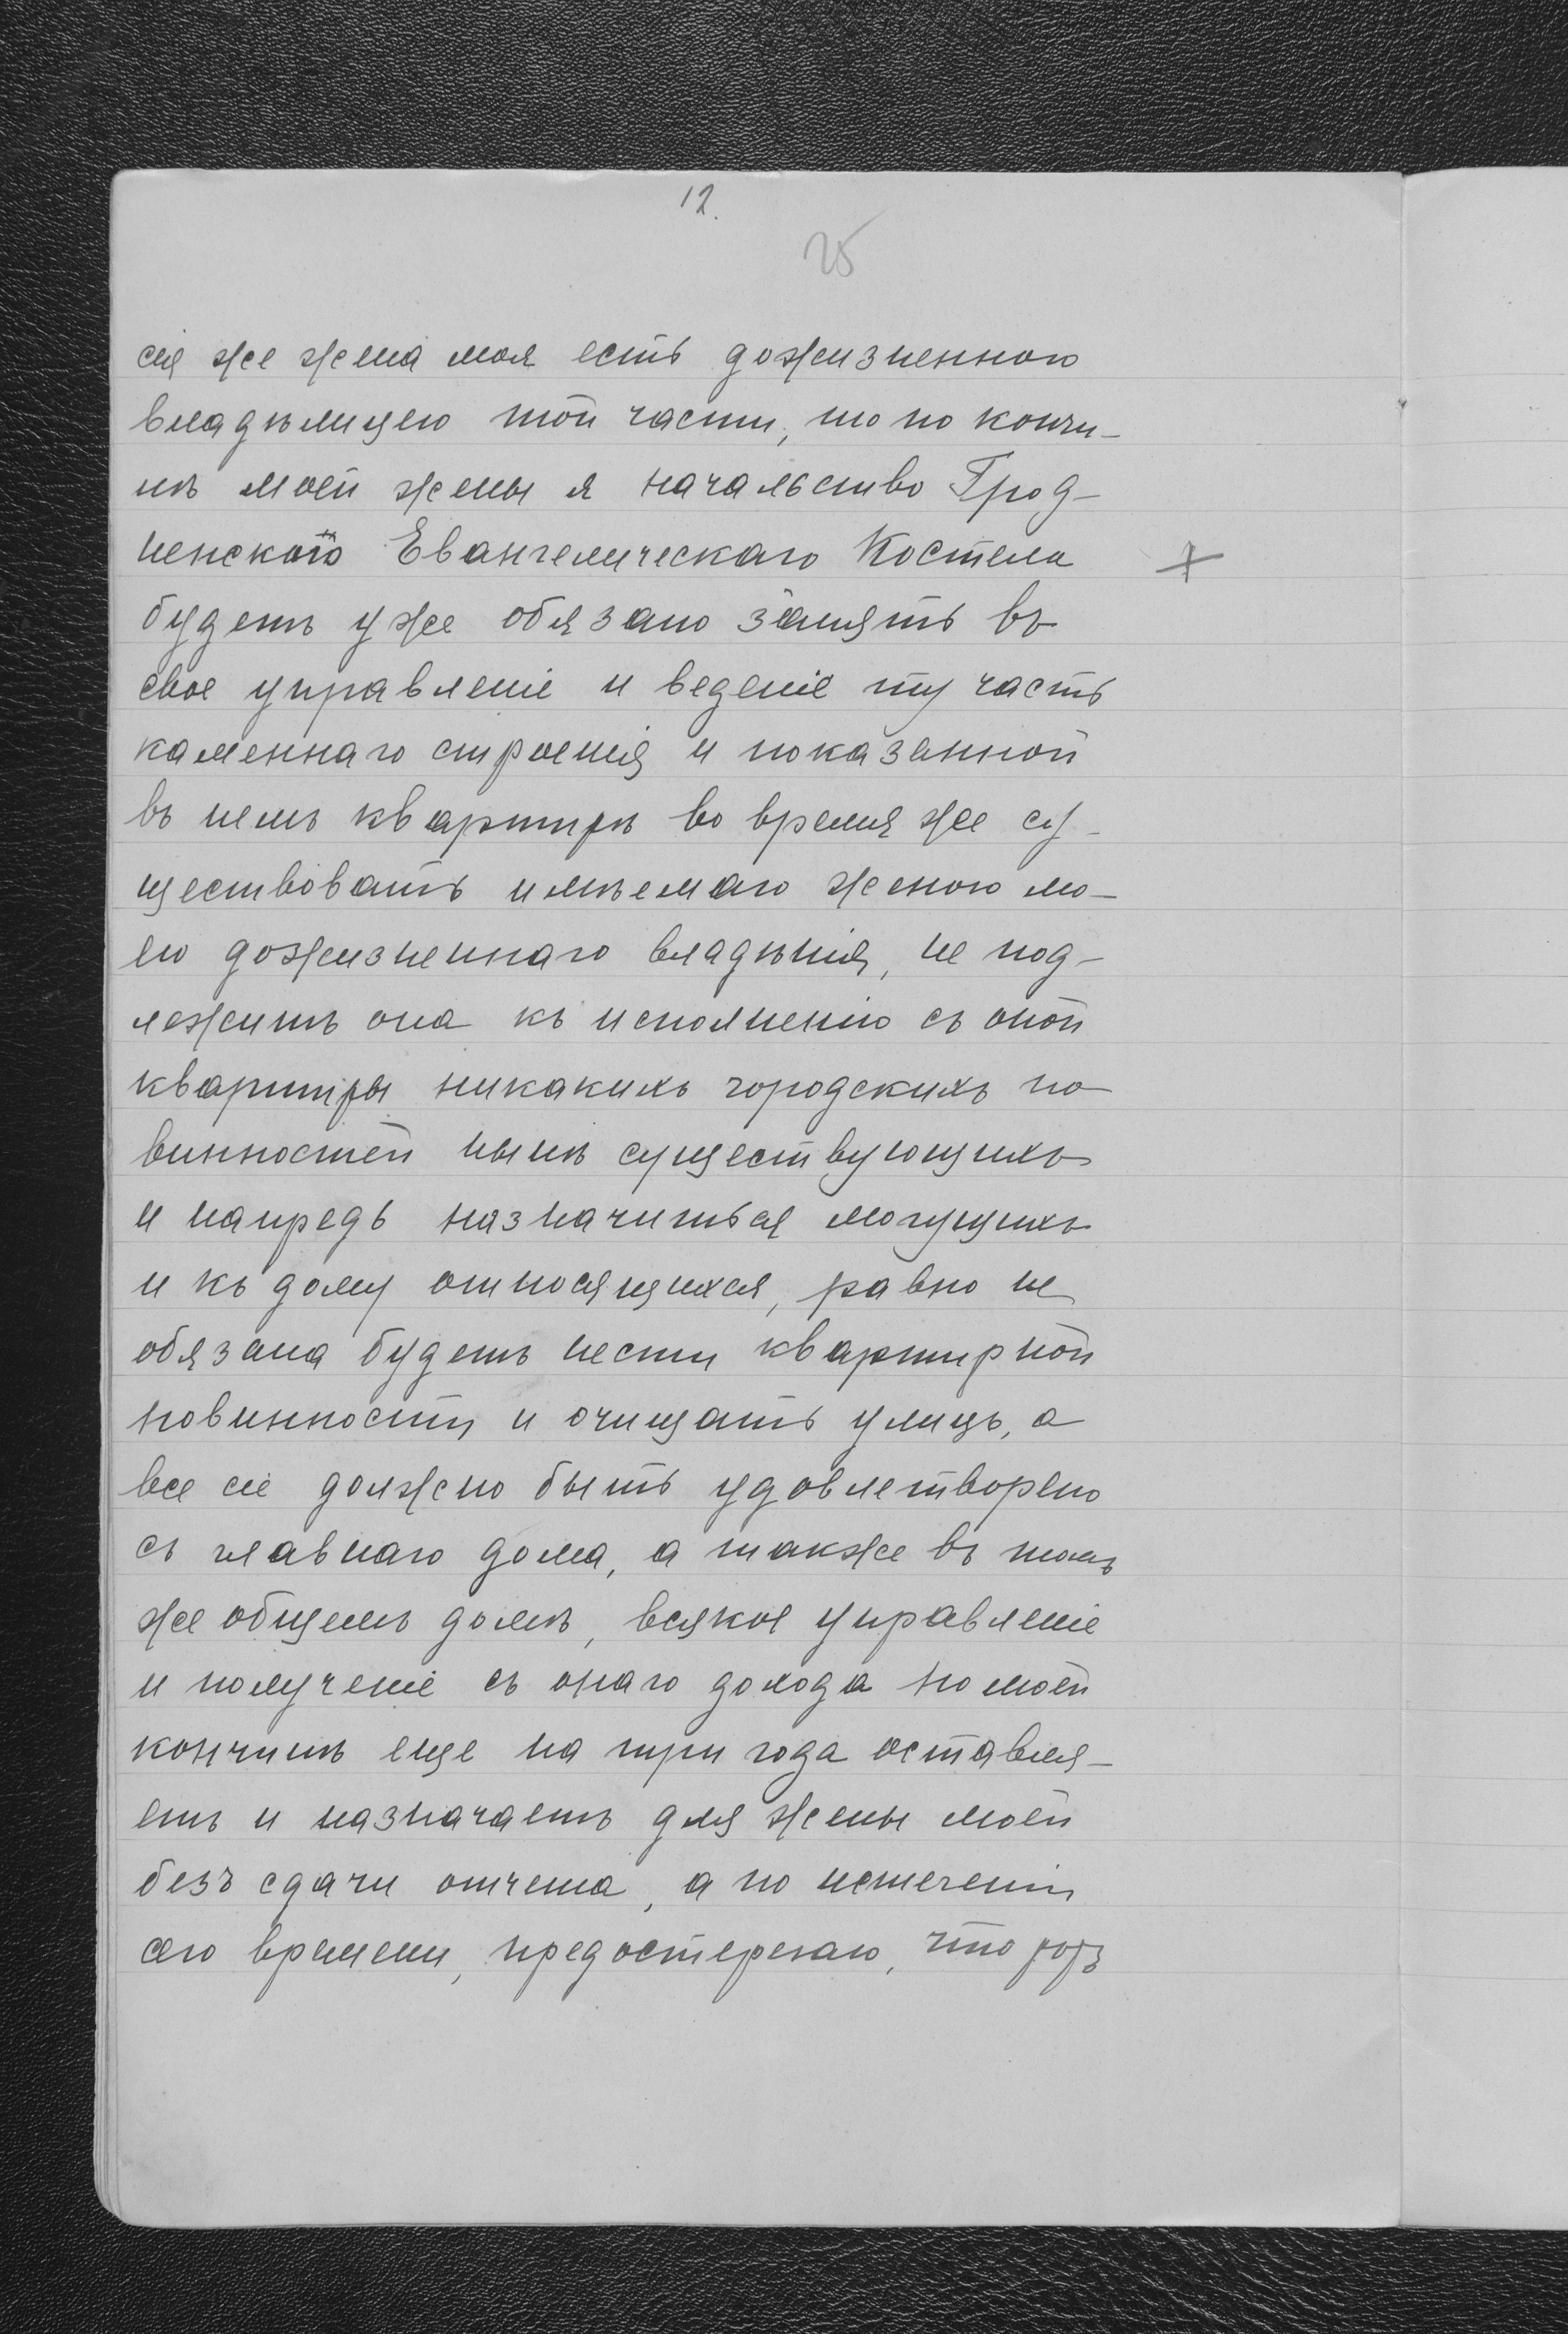 12.
25
сія же жена моя есть дожизненною
владѣлицею той части, то по кончи-
нѣ моей жены я начальство Грод-
ненскаго Евангелическаго Костела
будетъ уже обязано занять въ
свое управленіе и веденіе ту часть
каменнаго строенія и показанной
въ немъ квартирѣ во время же су-
ществовать имѣемаго женою мо-
ею дожизненнаго владѣнія, не под-
лежитъ она къ исполненію съ оной
квартиры никакихъ городскихъ по
винностей нынѣ существующихъ
и напредь назначиться могущихъ
и къ дому относящихся, равно не
обязана будетъ нести квартирной
повинности и очищать улицъ, а
все сіе должно быть удовлетворено
съ главнаго дома, а также въ томъ
же общемъ домѣ, всякое управленіе
и полученіе съ онаго дохода по моей
кончинѣ еще на три года оставля-
етъ и назначаетъ для жены моей
безъ сдачи отчета, а по истеченіи
сего времени, предостерегаю, что